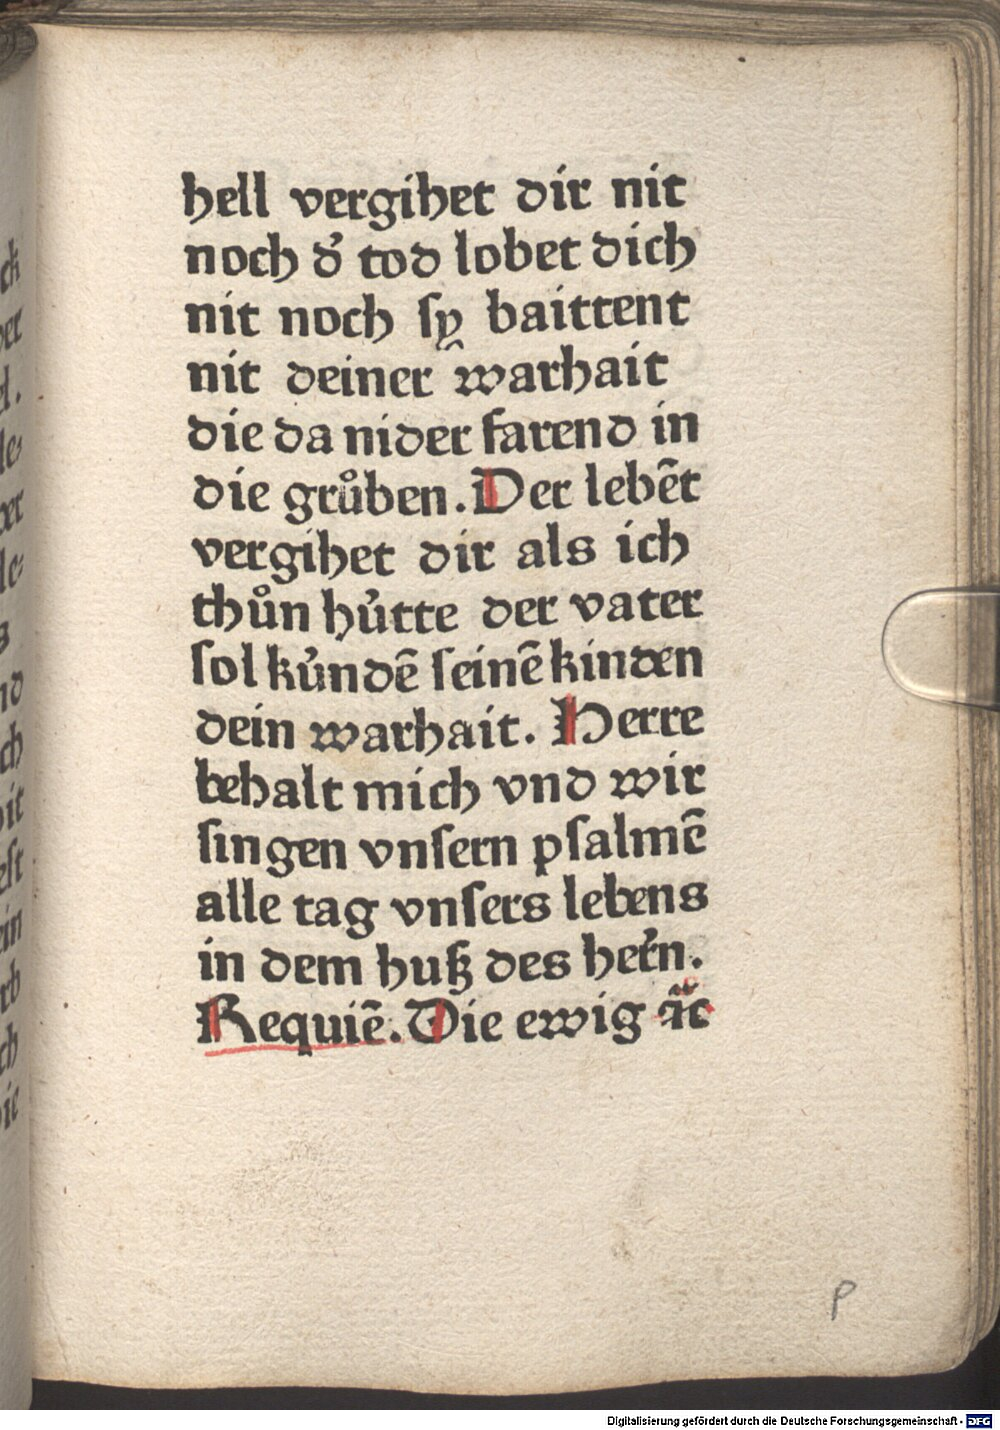 hell vergihet dir nit
noch d̛ tod lobet dich
nit noch ſy baittent
nit deiner warhait
die da nider farend in
die grůben. Der lebēt
vergihet dir als ich
thůn hu̇tte der vater
ſol ku̇ndē ſeinē kinden
dein warhait. Herre
behalt mich vnd wir
ſingen vnſern pſalmē
alle tag vnſers lebens
in dem huß des her̄n.
Requiē. Die ewig ꝛc̄
p
Digitalisierung gefördert durch die Deutsche Forschungsgemeinschaft - DFG